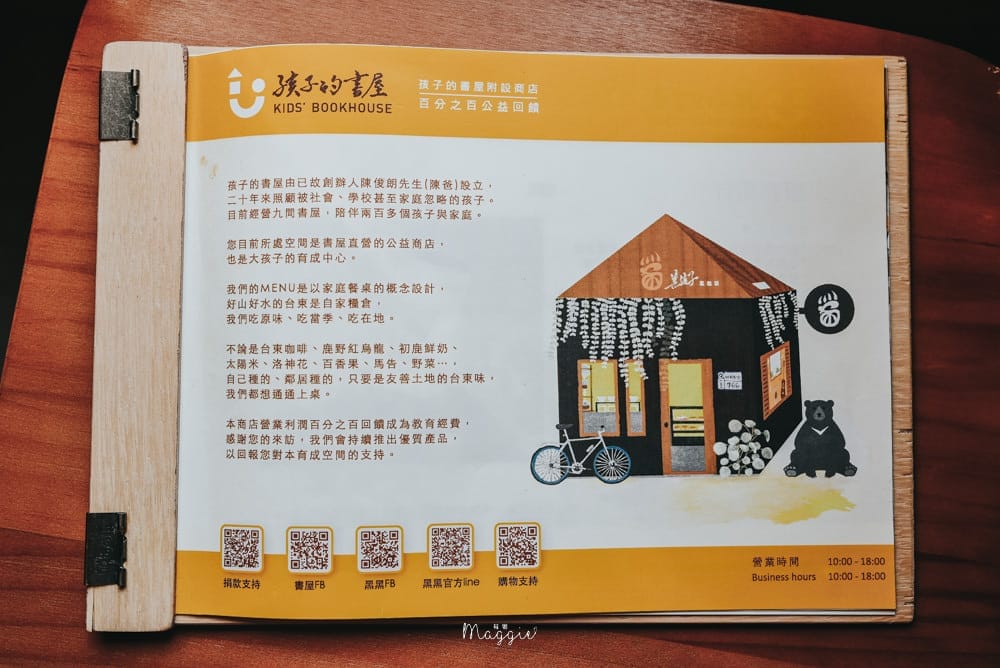 孩子的書屋
KIDS' BOOKHOUSE
孩子的書屋附設商店
百分之百公益回饋
孩子的書屋由已故創辦人陳俊朗先生(陳爸)設立，
二十年來照顧被社會、學校甚至家庭忽略的孩子。
目前經營九間書屋，陪伴兩百多個孩子與家庭。
您目前所處空間是書屋直營的公益商店，
也是大孩子的育成中心。
我們的MENU是以家庭餐桌的概念設計，
好山好水的台東是自家糧倉，
我們吃原味、吃當季、吃在地。
不論是台東咖啡、鹿野紅烏龍、初鹿鮮奶、
太陽米、洛神花、百香果、馬告、野菜…，
自己種的、鄰居種的，只要是友善土地的台東味，
我們都想通通上桌。
本商店營業利潤百分之百回饋成為教育經費，
感謝您的來訪，我們會持續推出優質產品，
以回報您對本育成空間的支持。
黑孩子
766
捐款支持
書屋FB
黑黑FB
黑黑官方line
購物支持
營業時間 10:00 - 18:00
Business hours 10:00 - 18:00
Maggie